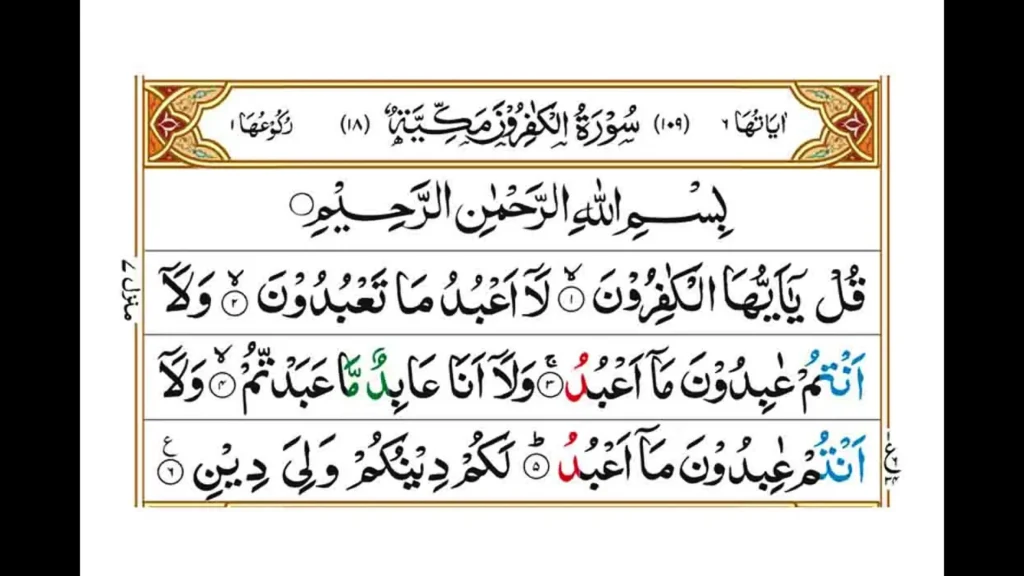 اٰيَاتُهَا ٦ (١٠٩) سُوْرَةُ الْكٰفِرُوْنَ مَكِّيَّةٌ (١٨) رُكُوْعُهَا ١
بِسْمِ اللّٰهِ الرَّحْمٰنِ الرَّحِيْمِ
قُلْ يٰۤاَيُّهَا الْكٰفِرُوْنَ ۙ﴿١﴾ لَاۤ اَعْبُدُ مَا تَعْبُدُوْنَ ۙ﴿٢﴾ وَلَاۤ
اَنْتُمْ عٰبِدُوْنَ مَاۤ اَعْبُدُ ۚ﴿٣﴾ وَلَاۤ اَنَا عَابِدٌ مَّا عَبَدْتُّمْ ۙ﴿٤﴾ وَلَاۤ
اَنْتُمْ عٰبِدُوْنَ مَاۤ اَعْبُدُ ؕ﴿٥﴾ لَكُمْ دِيْنُكُمْ وَلِيَ دِيْنِ ﴿٦﴾ ع
منزل ٧